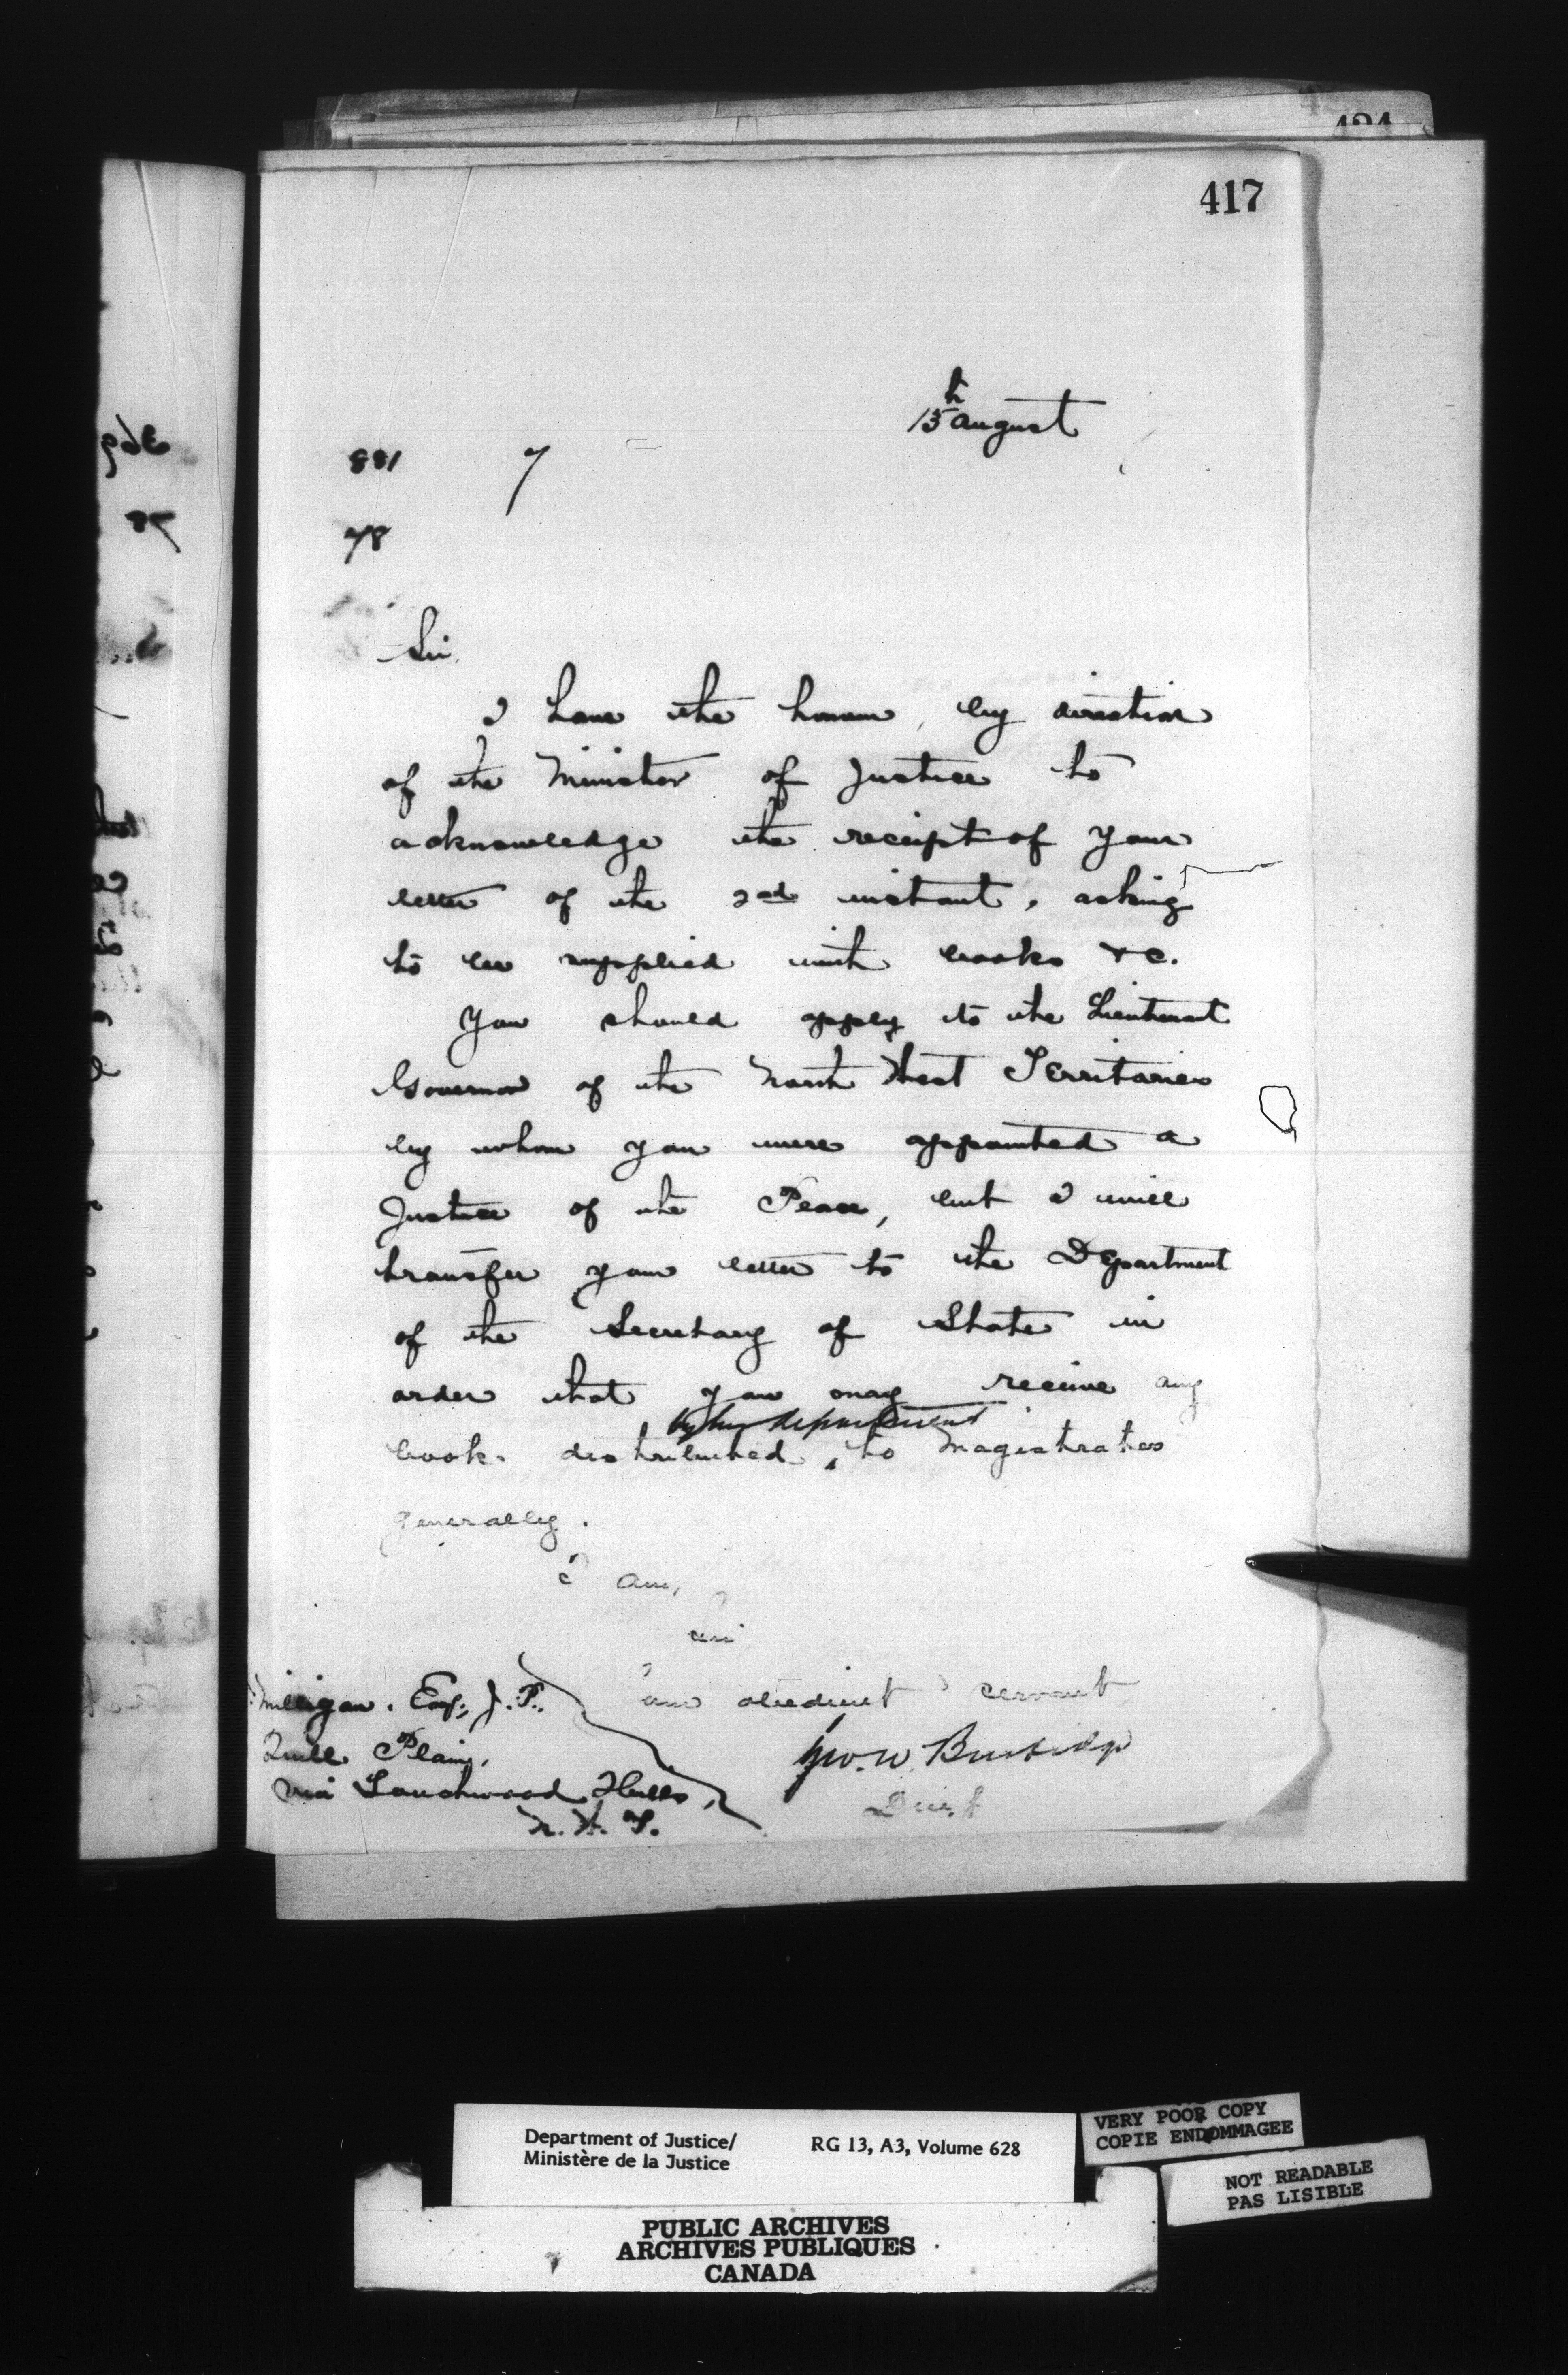 417
15th August
881 7
78
Sir,
I have the honour, by direction
of the Minister of Justice to
acknowledge the receipt of your
letter of the 2nd instant, asking
to be supplied with books &c.
You should apply to the Lieutenant
Governor of the North West Territories
by whom you were appointed a
Justice of the Peace, but I will
transfer your letter to the Department
of the Secretary of State in
order that you may receive any
by his department
books distributed ‸ to Magistrates
generally.
I am,
Sir
Your obedient servant
Geo. W. Burbidge
D.M.J.
Milligan. Esq., J.P.
Quill Plain,
via Touchwood Hills,
N.W.T.
Department of Justice/ RG 13, A3, Volume 628
Ministère de la Justice
VERY POOR COPY
COPIE ENDOMMAGEE
NOT READABLE
PAS LISIBLE
PUBLIC ARCHIVES
ARCHIVES PUBLIQUES
CANADA